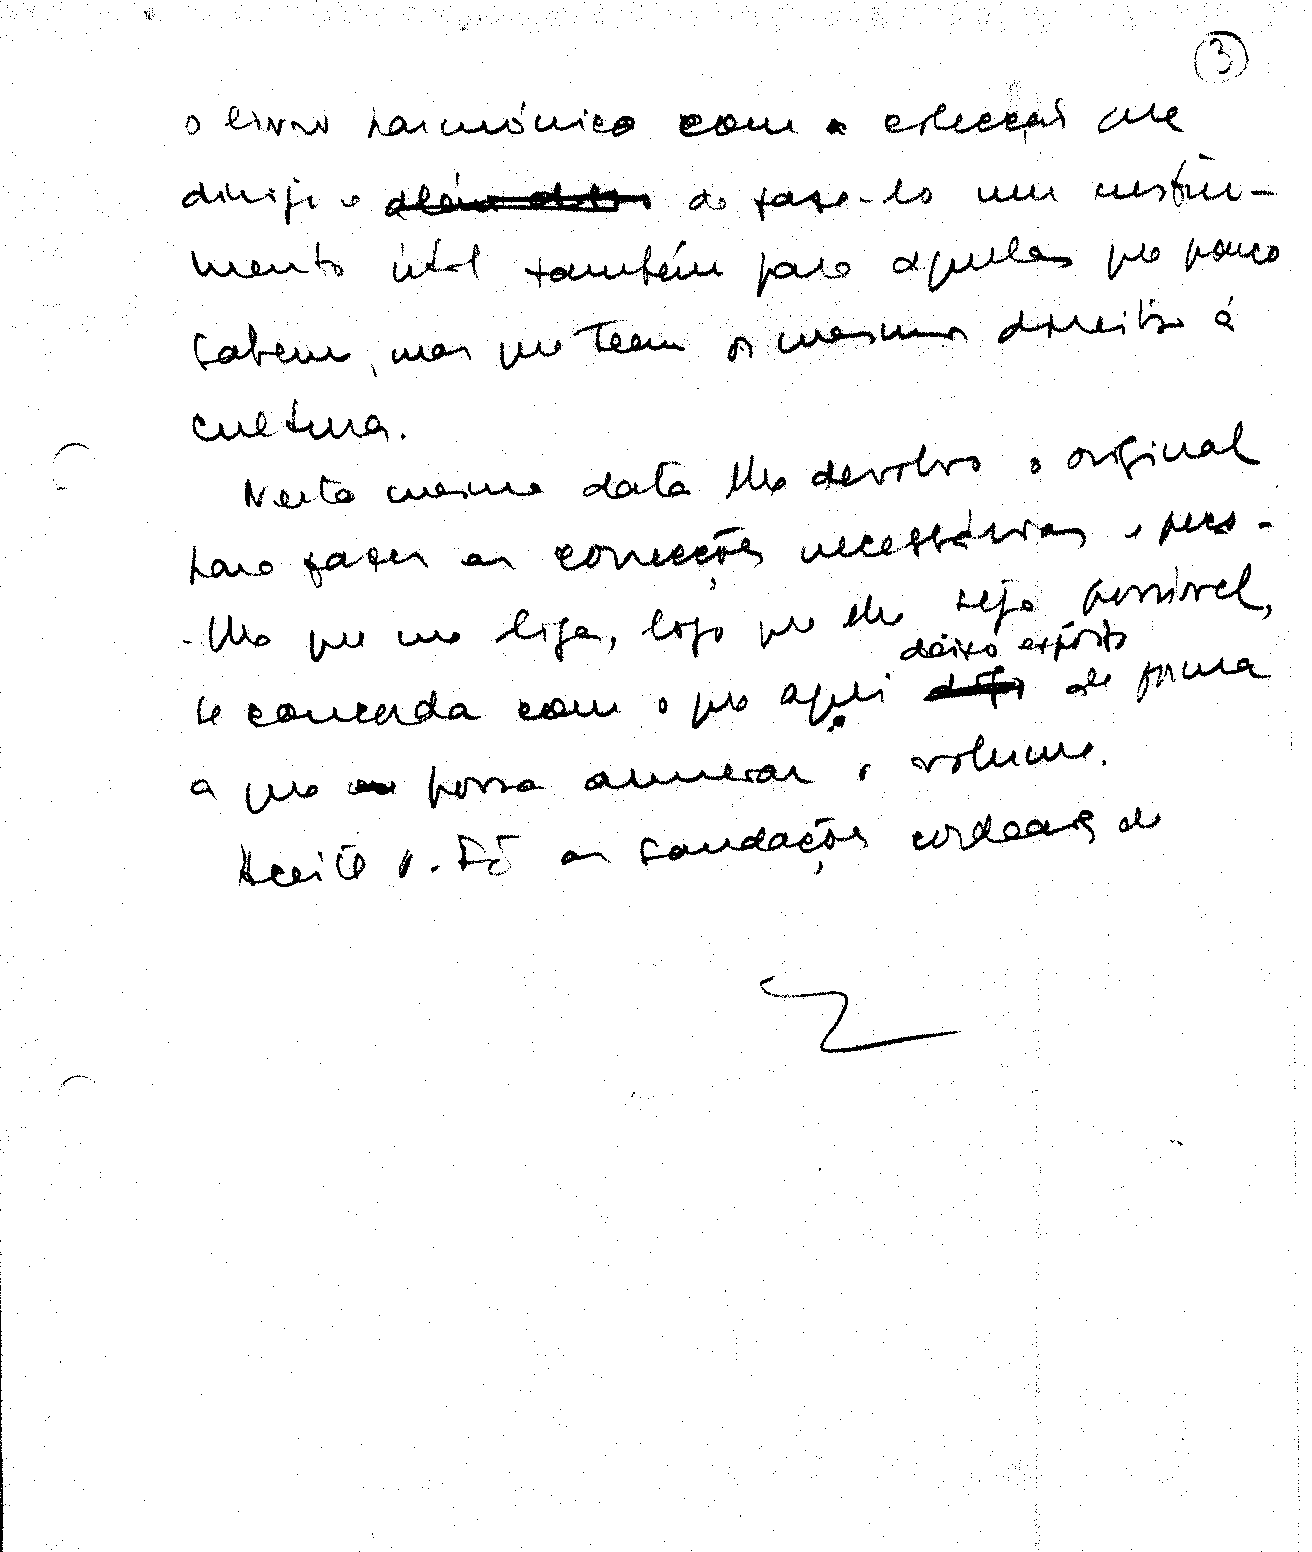 3
o livro harmónico com a colecção que
dirijo e de fazê-lo um instru-
mento útil também para aqueles que pouco
sabem, mas que teem os mesmos direitos à
cultura.
Nesta mesma data lhe devolvo o original
para fazer as correcções necessárias e peço-
-lhe que me diga, logo que lhe seja possível,
deixo expôsto
se concorda com o que aqui digo de forma
a que possa anunciar o volume.
Aceite as saudações cordeais de